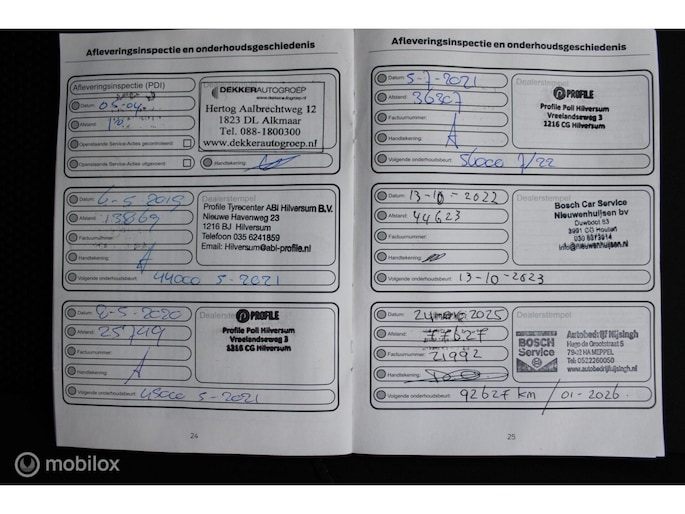 Afleveringsinspectie en onderhoudsgeschiedenis
Afleveringsinspectie (PDI)
Datum:
Afstand:
Openstaande Service-Acties gecontroleerd:
Openstaande Service-Acties uitgevoerd:
DEKKERAUTOGROEP
www.dekkerautogroep.nl
Hertog Aalbrechtweg 12
1823 DL Alkmaar
Tel. 088-1800300
www.dekkerautogroep.nl
Handtekening:
Datum: 6-5-2019
Afstand: 13869
Factuurnummer:
Handtekening:
Volgende onderhoudsbeurt: 44000 5-2021
Dealerstempel
Profile Tyrecenter ABI Hilversum B.V.
Nieuwe Havenweg 23
1216 BJ Hilversum
Telefoon 035 6241859
Email: Hilversum@abi-profile.nl
Datum: 2-5-2020
Afstand: 25749
Factuurnummer:
Handtekening:
Volgende onderhoudsbeurt: 45000 5-2021
PROFILE
Profile Poll Hilversum
Vreelandseweg 3
1216 CG Hilversum
24
Afleveringsinspectie en onderhoudsgeschiedenis
Datum: 5-7-2021
Afstand: 36307
Factuurnummer:
Handtekening:
Volgende onderhoudsbeurt: 56000 7/22
Dealerstempel
PROFILE
Profile Poll Hilversum
Vreelandseweg 3
1216 CG Hilversum
Datum: 13-10-2022
Afstand: 44623
Factuurnummer:
Handtekening:
Volgende onderhoudsbeurt: 13-10-2023
Dealerstempel
Bosch Car Service
Nieuwenhuijsen bv
Duwboot 83
3991 CG Houten
info@nieuwenhuijsen.nl
Datum: 2025
Afstand: 77627
Factuurnummer: 21992
Handtekening:
Volgende onderhoudsbeurt: 92627 km / 01-2026
Dealerstempel
BOSCH
Service
Autobedrijf Nijsingh
Hugo de Grootstraat 5
7942 HA MEPPEL
Tel: 0522260050
www.autobedrijfnijsingh.nl
25
mobilox